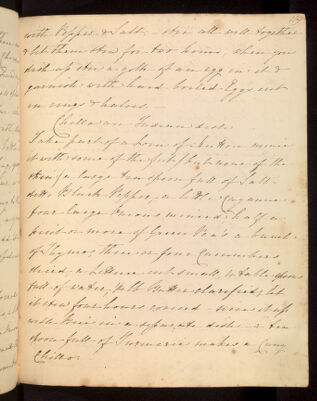 with Pepper & Salt, stew all well together
& let them stew for two hours, when you
dish up stir a yolk of an egg in it &
garnish with hard boiled Eggs cut
in rings & halves.
Chilloe an Indian dish
Take part of a Loin of Mutton mince
it with some of the fat, but none of the
skin, a large tea spoon full of Salt
ditto Black Pepper, a little Cayenne
four large Onions minced, half a
pint or more of Green Pea's a bunch
of Thyme, three or four Cucumbers
sliced, a Lettuce cut small, table spoon
full of water, Butter clarified, let
it stew four hours covered - serve it up
with Rice in a separate dish - a tea
spoon full of Turmeric makes a Curry
Chilloe